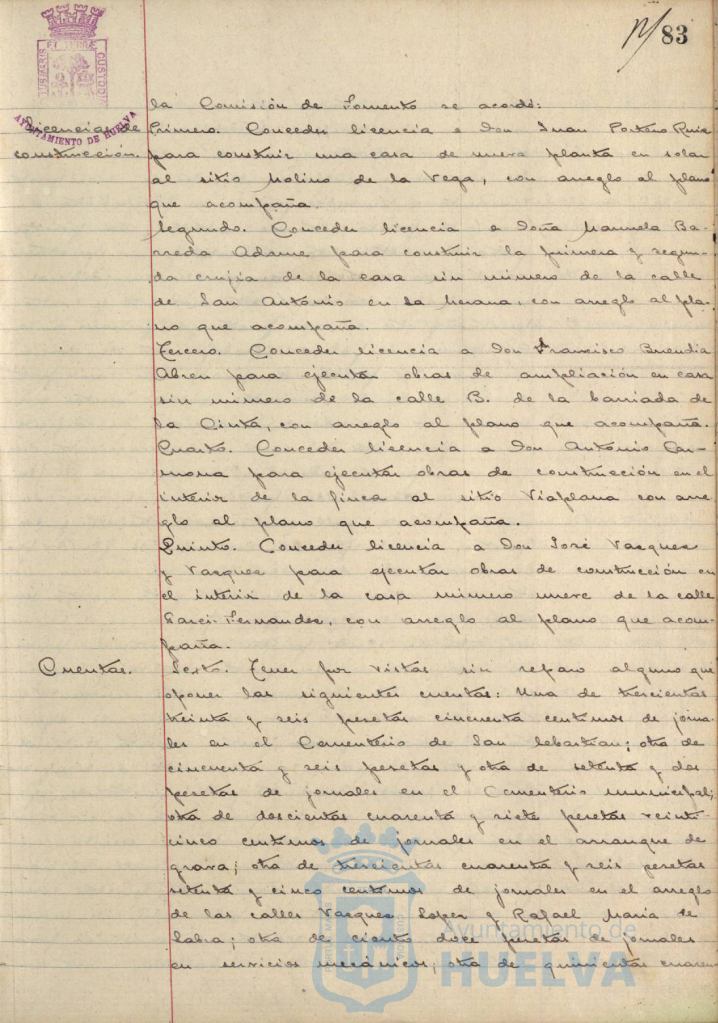 83
AYUNTAMIENTO DE HUELVA
la Comisión de Fomento se acordó:
Licencias de
construcción.
Primero. Conceder licencia a Don Juan Portero Ruiz
para construir una casa de nueva planta en solar
al sitio Molino de la Vega, con arreglo al plano
que acompaña.
Segundo. Conceder licencia a Doña Manuela Ba-
rreda Adame para construir la primera y segun-
da crujía de la casa sin número de la calle
de San António en la Merana, con arreglo al pla-
no que acompaña.
Tercero. Conceder licencia a Don Francisco Buendia
Abreu para ejecutar obras de ampliación en casa
sin número de la calle B. de la barriada de
la Cinta, con arreglo al plano que acompaña.
Cuarto. Conceder licencia a Don António Car-
mona para ejecutar obras de construcción en el
interior de la finca al sitio Viaplana con arre-
glo al plano que acompaña.
Quinto. Conceder licencia a Don José Vazquez
y Vazquez para ejecutar obras de construcción en
el interior de la casa número nueve de la calle
Garci-Fernandez, con arreglo al plano que acom-
paña.
Cuentas.
Sexto. Tener por vistas sin reparo alguno que
oponer las siguientes cuentas: Una de trescientas
treinta y seis pesetas cincuenta centimos de jorna-
les en el Cementerio de San Sebastian; otra de
cincuenta y seis pesetas y otra de setenta y dos
pesetas de jornales en el Cementerio municipal;
otra de doscientas cuarenta y siete pesetas veinti-
cinco centimos de jornales en el arranque de
grava; otra de trescientas cuarenta y seis pesetas
setenta y cinco centimos de jornales en el arreglo
de las calles Vazquez Lopez y Rafael Maria de
Labra; otra de ciento doce pesetas de jornales
en servicios mecánicos; otra de quinientas cuaren-
Ayuntamiento de
HUELVA